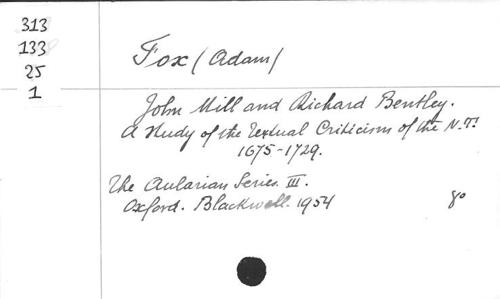 313
133
25
1
Fox (Adam)
John Mill and Richard Bentley.
A Study of the Textual Criticism of the N.T.
1675-1729.
The Aularian Series III.
Oxford. Blackwell. 1954
8o